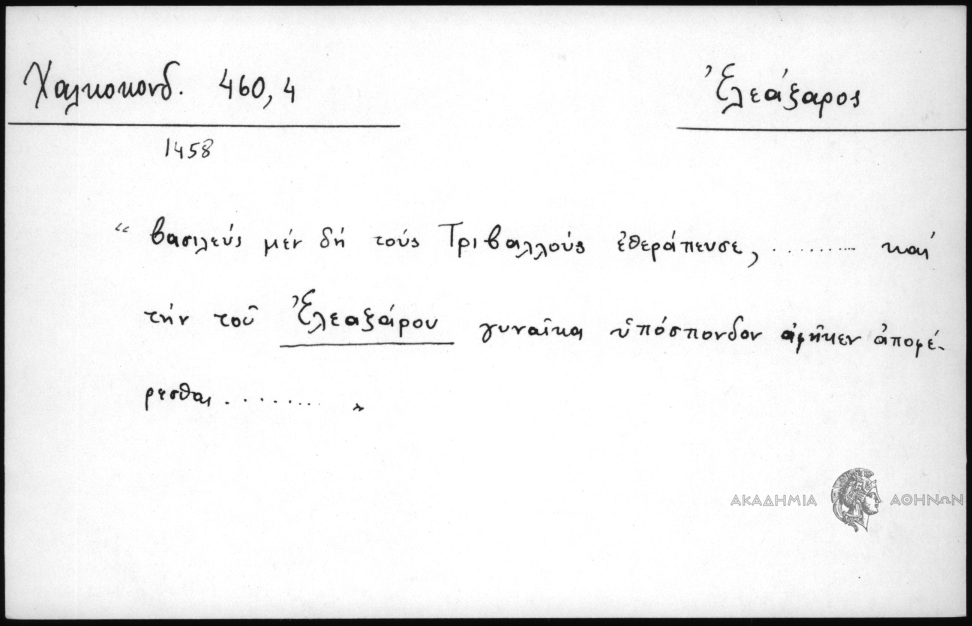 Χαλκοκονδ. 460,4
Ἐλεάζαρος
1458
“ βασιλεύς μέν δή τούς Τριβαλλούς ἐθεράπευσε, .......... καί
τήν τοῦ Ἐλεαζάρου γυναῖκα ὑπόσπονδον ἀφῆκεν ἀποφέ-
ρεσθαι ........ „
ΑΚΑΔΗΜΙΑ ΑΘΗΝΩΝ